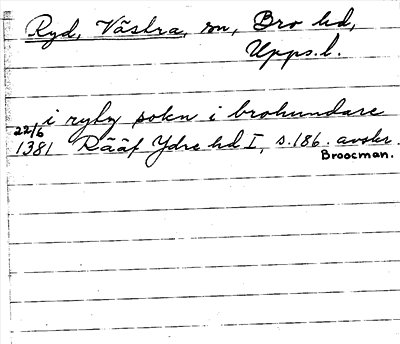 Ryd, Västra, sn, Bro hd,
Upps.l.
i ryby sokn i brohundare
22/6
1381 Rääf Ydre hd I, s.186. avskr.
Broocman.